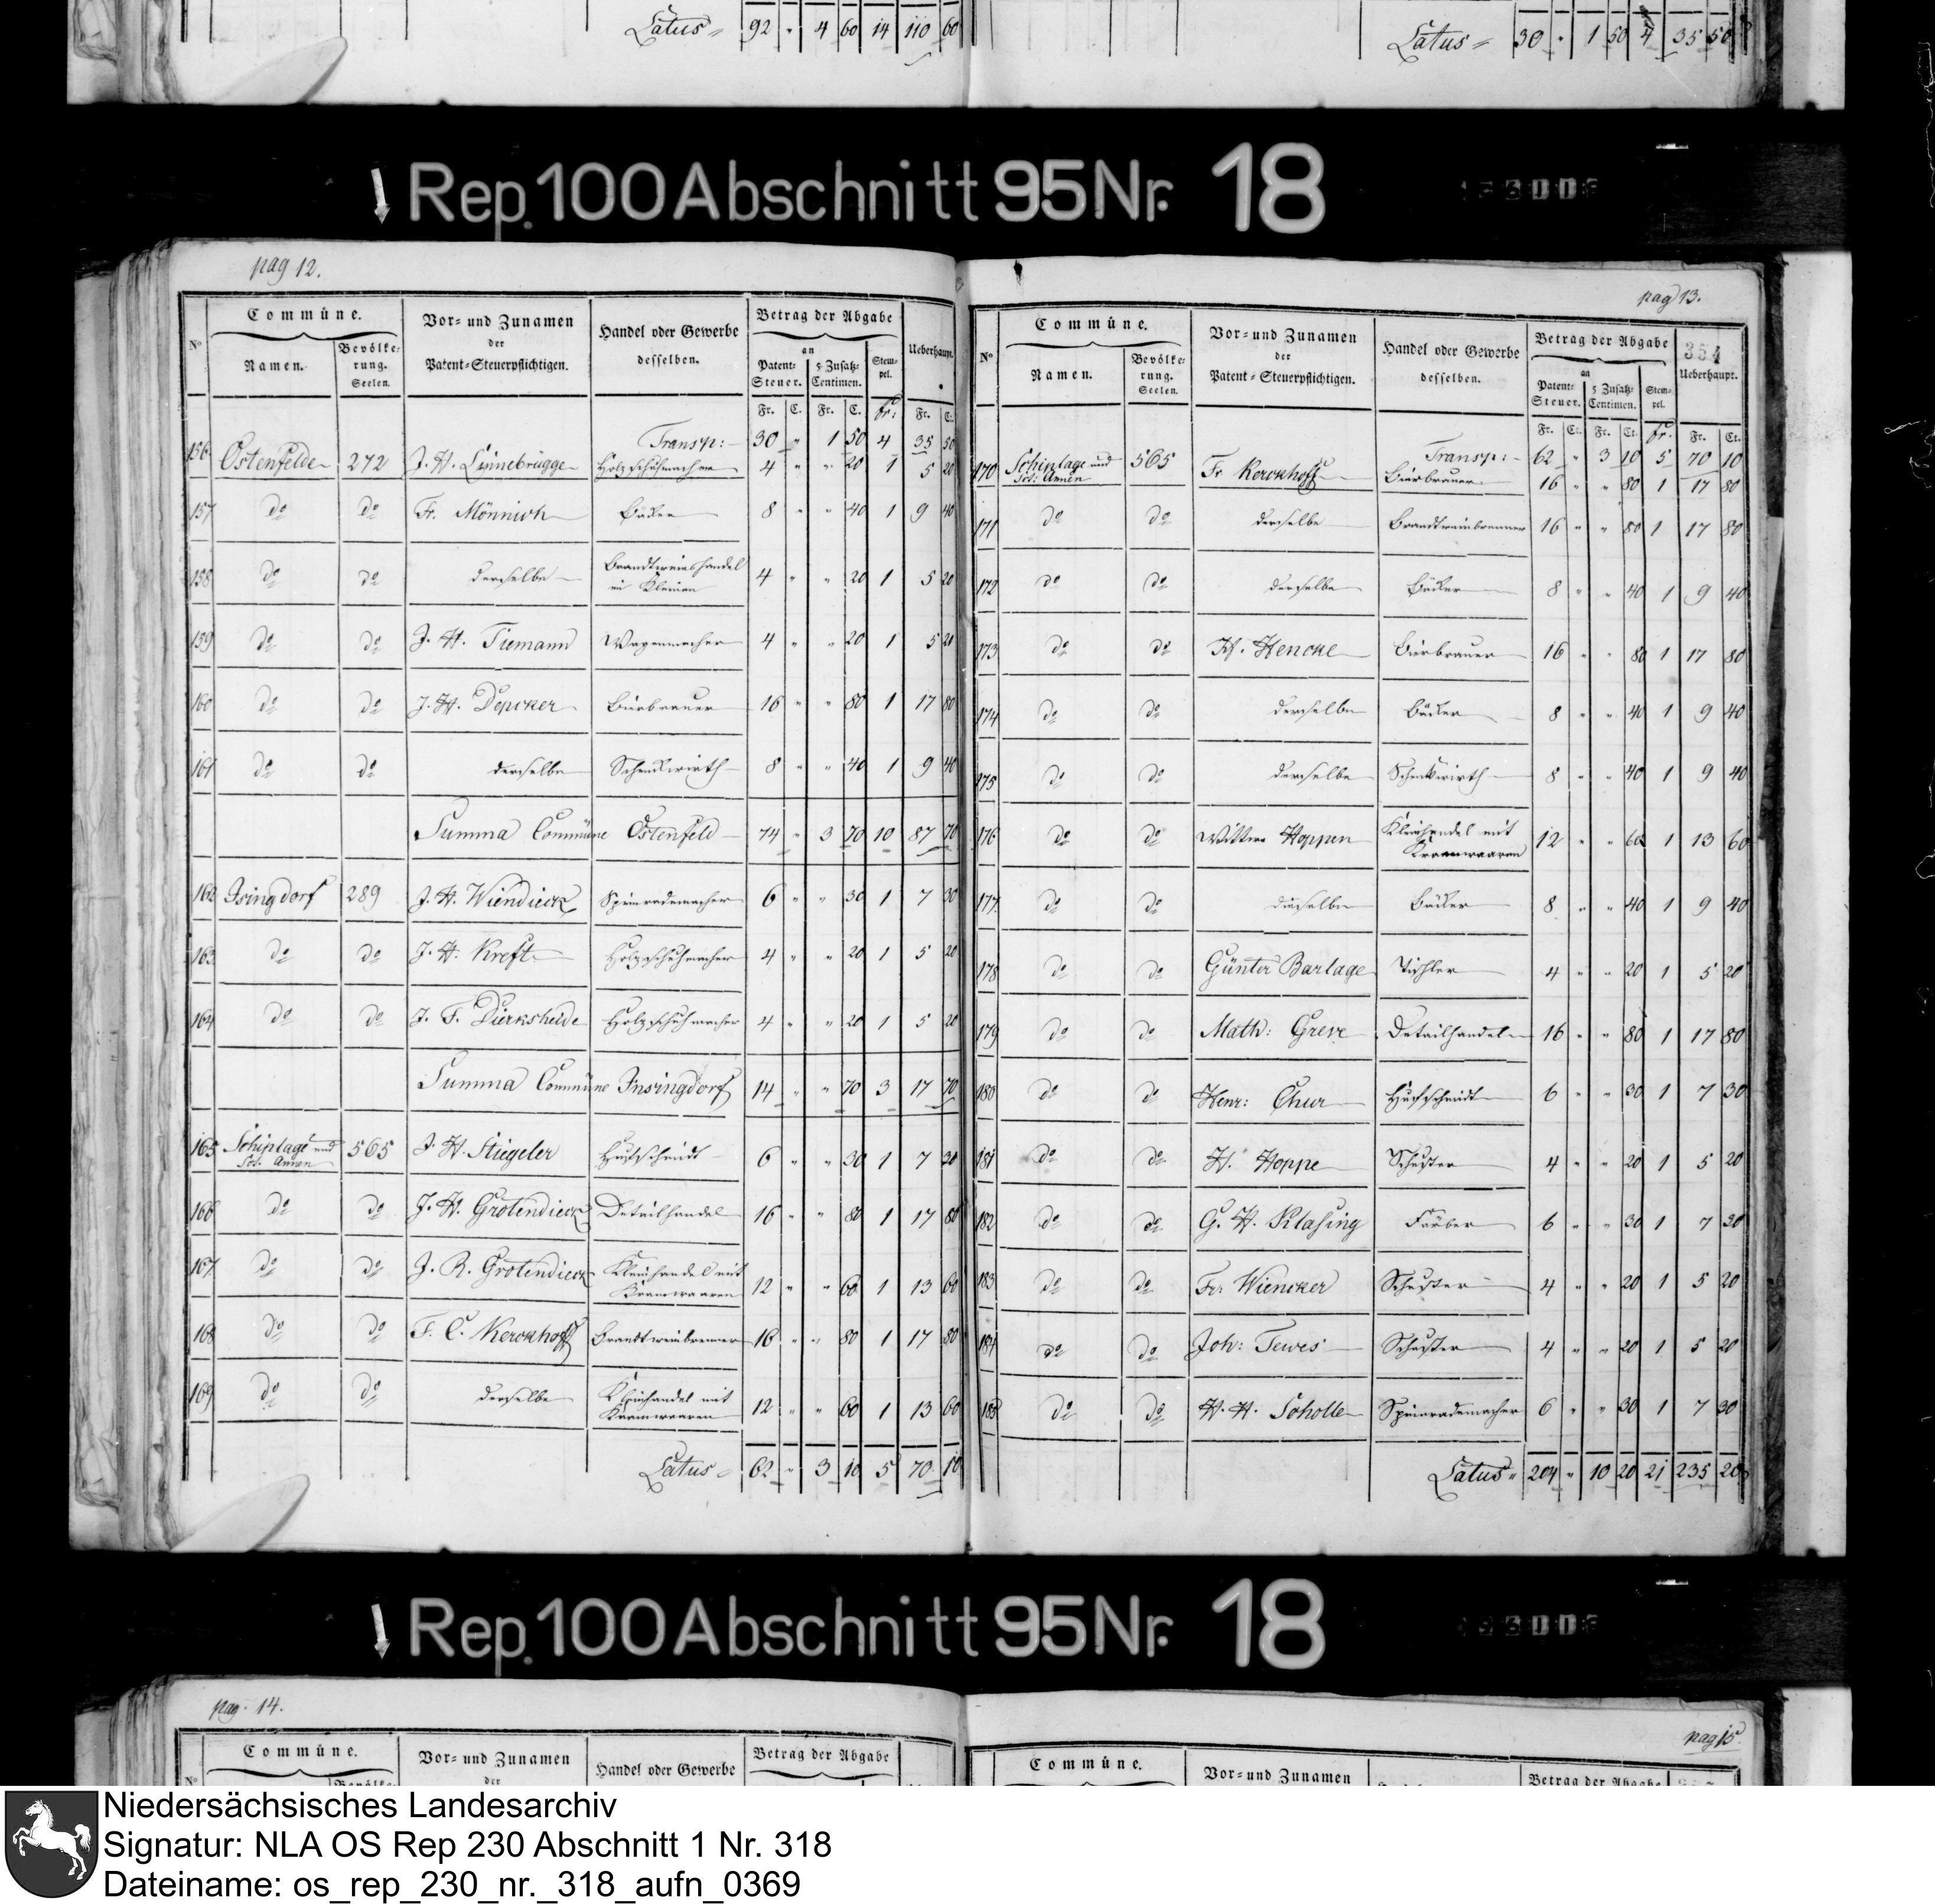 Latus = 92 " 4 60 14 110 60
Latus = 30 " 1 50 4 35 50
Rep. 100 Abschnitt 95 Nr. 18
pag 12.
Nº Commüne. Vor= und Zunamen der Patent=Steuerpflichtigen. Handel oder Gewerbe desselben. Betrag der Abgabe Ueberhaupt.
Namen. Bevölke=rung. Seelen. an Patent=Steuer. 5 Zusatz=Centimen. Stem=pel.
Fr. C. Fr. C. Fr. Fr. C.
Transp: 30 " 1 50 4 35 50
156 Ostenfelde 272 J. H. Linnebrügge Holzschuhmacher 4 " " 20 1 5 20
157 dº dº Fr. Mönnich Bäcker 8 " " 40 1 9 40
158 dº dº derselbe Brandtweinshandel
im Kleinen 4 " " 20 1 5 20
159 dº dº J. H. Tiemann Wagenmacher 4 " " 20 1 5 20
160 dº dº J. H. Depcker Bierbrauer 16 " " 80 1 17 80
161 dº dº derselbe Schenkwirth 8 " " 40 1 9 40
Summa Commüne Ostenfeld 74 " 3 70 10 87 70
162 Isingdorf 289 J. H. Wiendieck Spinrademacher 6 " " 30 1 7 30
163 dº dº J. H. Kreft Holzschuhmacher 4 " " 20 1 5 20
164 dº dº J. F. Dierksheide Holzschuhmacher 4 " " 20 1 5 20
Summa Commüne Insingdorf 14 " " 70 3 17 70
165 Schiplage und
Sct. Annen 565 J. H. Stiegeler Hufschmidt 6 " " 30 1 7 30
166 dº dº J. H. Grotendieck Detailhandel 16 " " 80 1 17 80
167 dº dº J. R. Grotendieck Kleinhandel mit
Kramwaaren 12 " " 60 1 13 60
168 dº dº F. C. Kerckhoff Brandtweinbrenner 16 " " 80 1 17 80
169 dº dº derselbe Kleinhandel mit
Kramwaaren 12 " " 60 1 13 60
Latus = 62 " 3 10 5 70 10
pag 13.
354
Nº Commüne. Vor= und Zunamen der Patent=Steuerpflichtigen. Handel oder Gewerbe desselben. Betrag der Abgabe Ueberhaupt.
Namen. Bevölke=rung. Seelen. an Patent=Steuer. 5 Zusatz=Centimen. Stem=pel.
Fr. Ct. Fr. Ct. Fr. Fr. Ct.
Transp: 62 " 3 10 5 70 10
170 Schiplage und
Sct: Annen 565 Fr Kerckhoff Bierbrauer 16 " " 80 1 17 80
171 dº dº derselbe Brandtweinbrenner 16 " " 80 1 17 80
172 dº dº derselbe Bäcker 8 " " 40 1 9 40
173 dº dº H. Hencke Bierbrauer 16 " " 80 1 17 80
174 dº dº derselbe Bäcker 8 " " 40 1 9 40
175 dº dº derselbe Schenkwirth 8 " " 40 1 9 40
176 dº dº Wittwe Hoppen Kleinhandel mit
Kramwaaren 12 " " 60 1 13 60
177 dº dº dieselbe Bäcker 8 " " 40 1 9 40
178 dº dº Günter Barlage Tischler 4 " " 20 1 5 20
179 dº dº Math: Greve Detailhandel 16 " " 80 1 17 80
180 dº dº Henr: Chur Hufschmidt 6 " " 30 1 7 30
181 dº dº H. Hoppe Schuster 4 " " 20 1 5 20
182 dº dº G. H. Klasing Färber 6 " " 30 1 7 30
183 dº dº Fr. Wiencker Schuster 4 " " 20 1 5 20
184 dº dº Joh: Tewes Schuster 4 " " 20 1 5 20
185 dº dº H. H. Scholle Spinrademacher 6 " " 30 1 7 30
Latus = 204 " 10 20 21 235 20
Rep. 100 Abschnitt 95 Nr. 18
pag. 14.
Commüne. Vor= und Zunamen der Handel oder Gewerbe Betrag der Abgabe
pag 15
Commüne. Vor= und Zunamen Betrag der Abgabe
Niedersächsisches Landesarchiv
Signatur: NLA OS Rep 230 Abschnitt 1 Nr. 318
Dateiname: os_rep_230_nr._318_aufn_0369